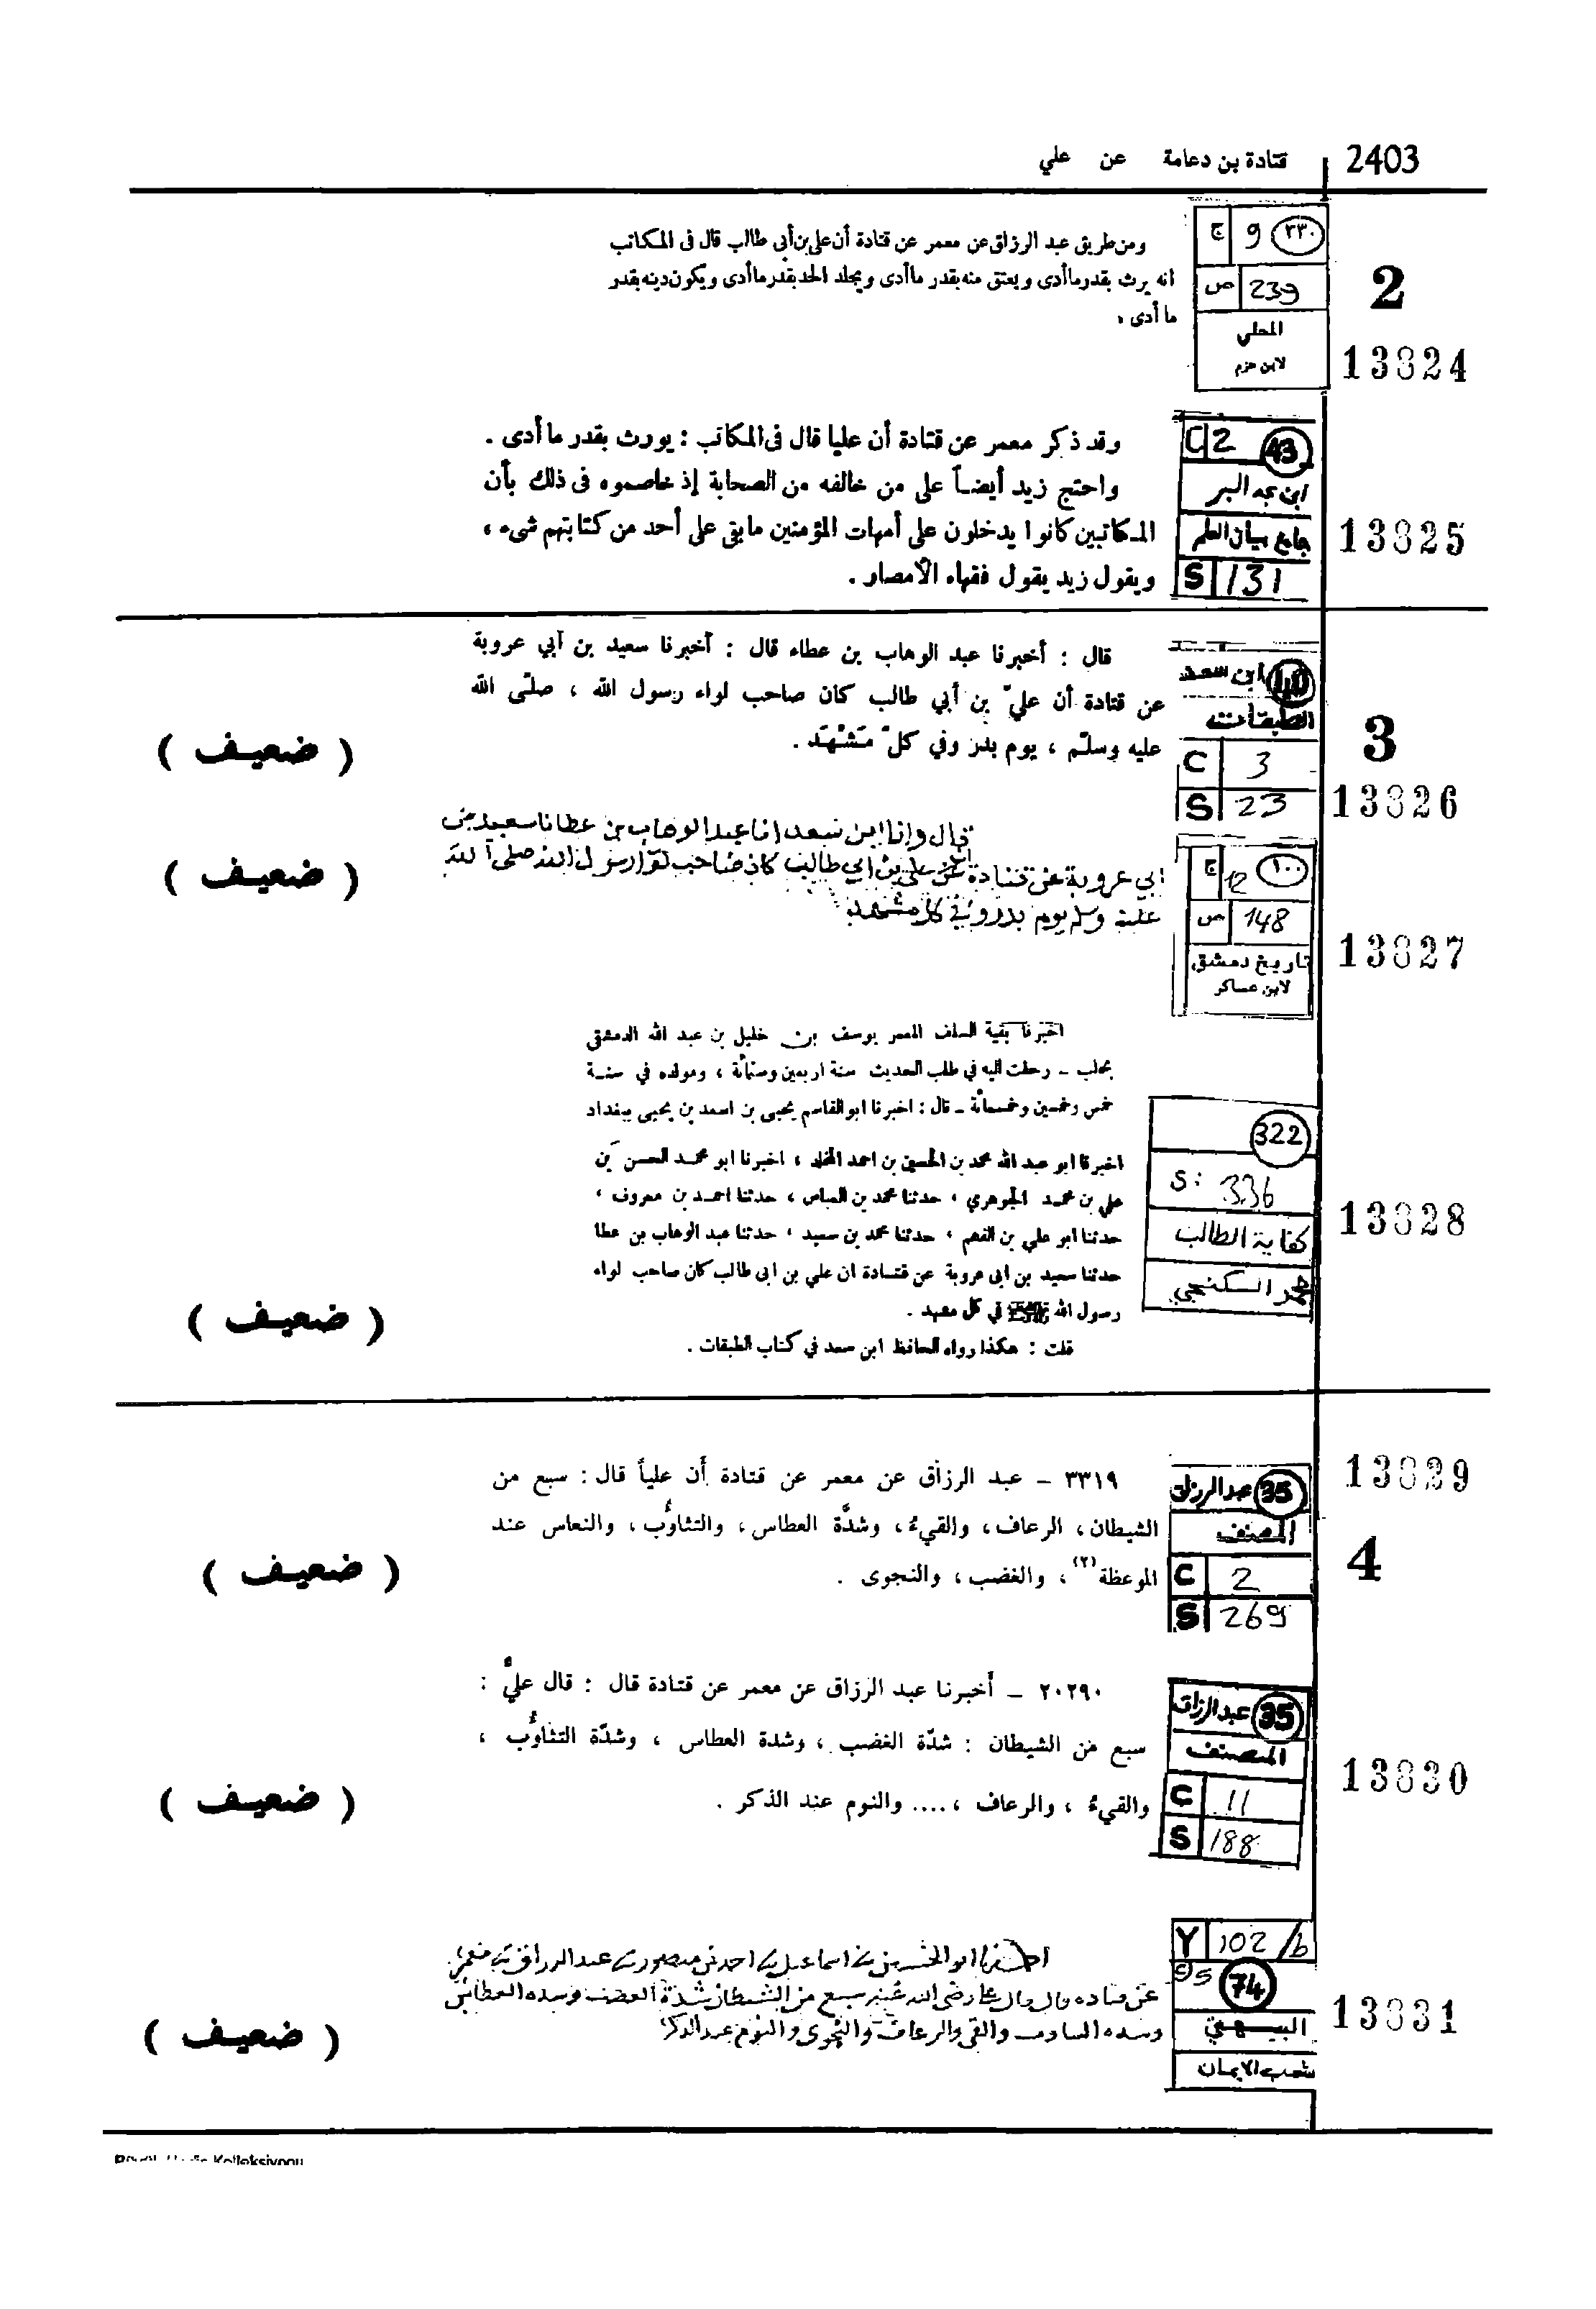 2403 قتادة بن دعامة عن علي
ج 9 ٣٣٠
ص 239
المحلى
لابن حزم
2
13824
ومن طريق عبد الرزاق عن معمر عن قتادة أن على بن أبى طالب قال فى المكاتب
انه يرث بقدر ما أدى ويعتق منه بقدر ما أدى ويجلد الحد بقدر ما أدى ويكون دينه بقدر
ما أدى .
C 2 43
ابن عبد البر
جامع بيان العلم
S 131
13825
وقد ذكر معمر عن قتادة أن عليا قال فى المكاتب : يورث بقدر ما أدى .
واحتج زيد أيضاً على من خالفه من الصحابة إذ خاصموه فى ذلك بأن
المكاتبين كانوا يدخلون على أمهات المؤمنين ما بقى على أحد من كتابتهم شىء ،
ويقول زيد يقول فقهاء الأمصار .
ابن سعد 40
الطبقات
C 3
S 23
3
13826
قال : أخبرنا عبد الوهاب بن عطاء قال : أخبرنا سعيد بن أبي عروبة
عن قتادة أن عليّ بن أبي طالب كان صاحب لواء رسول الله ، صلّى الله
عليه وسلّم ، يوم بدر وفي كلّ مَشْهَد .
( ضعيف )
ج 12 ١٠٠
ص 148
تاريخ دمشق
لابن عساكر
13827
قال وانا ابن سعد انا عبد الوهاب بن عطا نا سعيد بن
ابي عروبة عن قتادة علي بن ابي طالب كان صاحب لوا رسول الله صلى الله
عليه وسلم يوم بدر وفي كل مشهد
( ضعيف )
322
S: 336
كفاية الطالب
محمد السكنجي
13828
اخبرنا بقية السلف المعمر يوسف بن خليل بن عبد الله الدمشقي
بحلب - رحلت اليه في طلب الحديث سنة اربعين وستمائة ، ومولده في سنة
خمس وخمسين وخمسمائة - قال : اخبرنا ابو القاسم يحيى بن اسعد بن يحيى ببغداد
اخبرنا ابو عبد الله محمد بن الحسين بن احمد المخلد ، اخبرنا ابو محمد الحسن بن
علي بن محمد الجوهري ، حدثنا محمد بن العباس ، حدثنا احمد بن معروف ،
حدثنا ابو علي بن الفهم ، حدثنا محمد بن سعيد ، حدثنا عبد الوهاب بن عطا
حدثنا سعيد بن ابى عروبة عن قتادة ان علي بن ابى طالب كان صاحب لواء
رسول الله في كل مشهد .
قلت : هكذا رواه الحافظ ابن سعد في كتاب الطبقات .
( ضعيف )
عبد الرزاق 35
المصنف
C 2
S 269
13839
4
٣٣١٩ - عبد الرزاق عن معمر عن قتادة أن علياً قال : سبع من
الشيطان ، الرعاف ، والقيءُ ، وشدَّة العطاس ، والتثاوُب ، والنعاس عند
الموعظة (٢) ، والغضب ، والنجوى .
( ضعيف )
عبد الرزاق 35
المصنف
C 11
S 188
13830
٢٠٢٩٠ - أخبرنا عبد الرزاق عن معمر عن قتادة قال : قال عليٌّ :
سبع من الشيطان : شدّة الغضب ، وشدة العطاس ، وشدّة التثاوُب ،
والقيءُ ، والرعاف ، .... والنوم عند الذكر .
( ضعيف )
Y 102/b
74
البيهقي
شعب الايمان
13831
ابو الحسين بن اسماعيل احمد بن منصور عبد الرزاق معمر
عن قتاده قال قال علي رضى الله عنه سبع من الشيطان شدة الغضب وشده العطاس
وشده التثاوب والقى والرعاف والنجوى والنوم عند الذكر
( ضعيف )
Kolleksiyonu